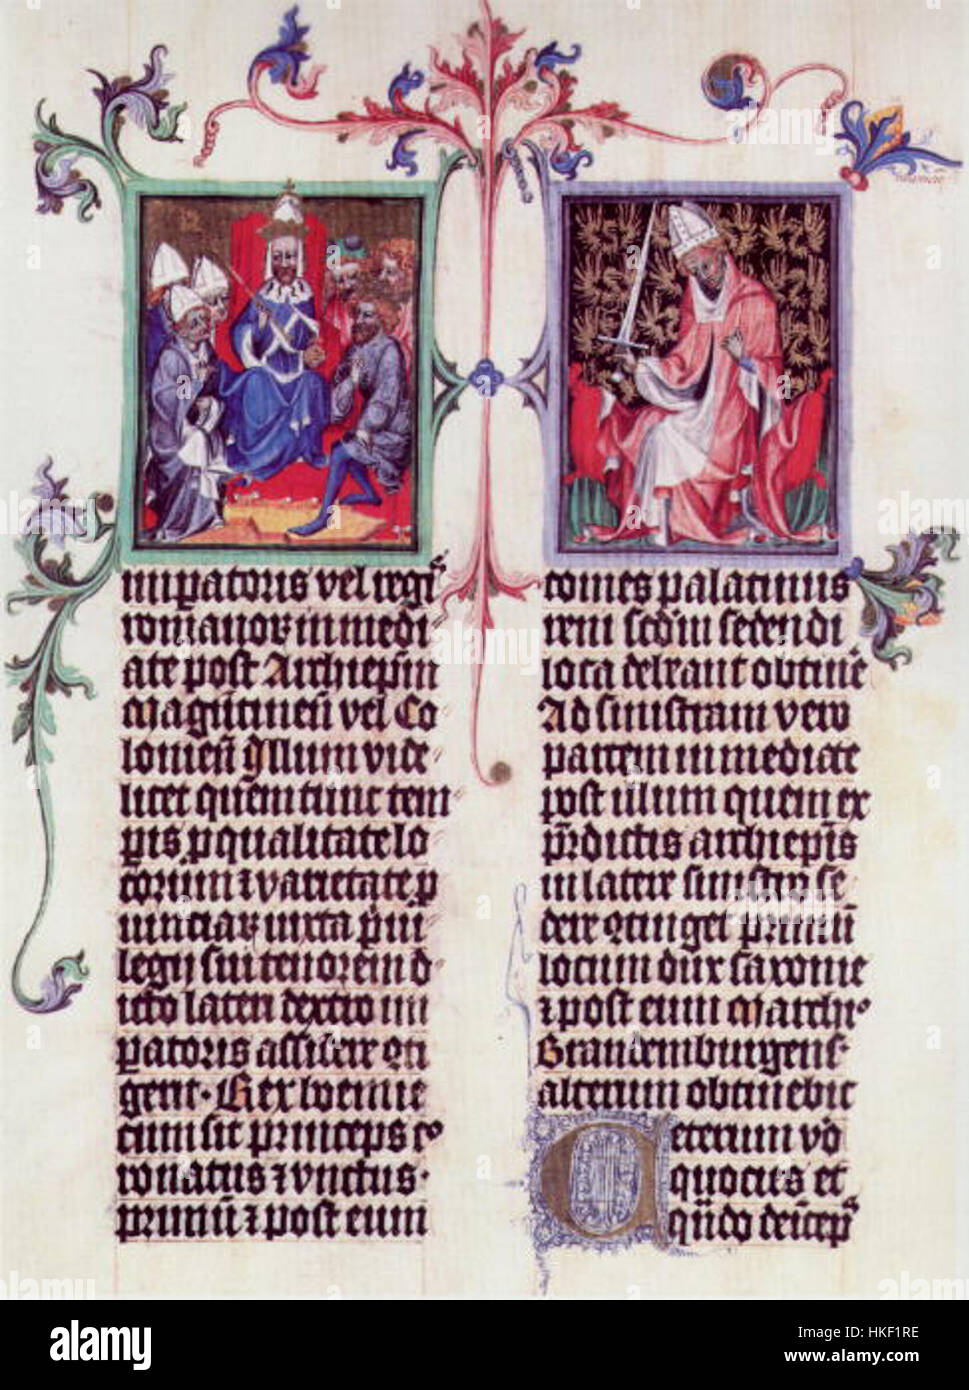 imperatoris vel regis
romanor immedi
ate post Archiepm
Magutinen vel Co
lonien Illum vide
licet quem tunc tem
pis pqualitate lo
corum et varietate p
vinciar iuxta pui
legij sui tenorem i
isto latere dextro im
peratoris assidere cti
gerit. Rex boemie
cum sit princeps co
ronatus et vnctus.
primu et post eum
comes palatinus
reni scdm sedendi
loca debeant obtine
Ad sinistram vero
partem immediate
post illum quem ex
predictis archiepis
in latere sinistro se
dere ctinget primum
locum dux saxonie
et post eum Marchio
Brandemburgens
alterum obtinebit
Ceterum vo
quocus et
quando deicep
alamy
Image ID: HKF1RE
www.alamy.com